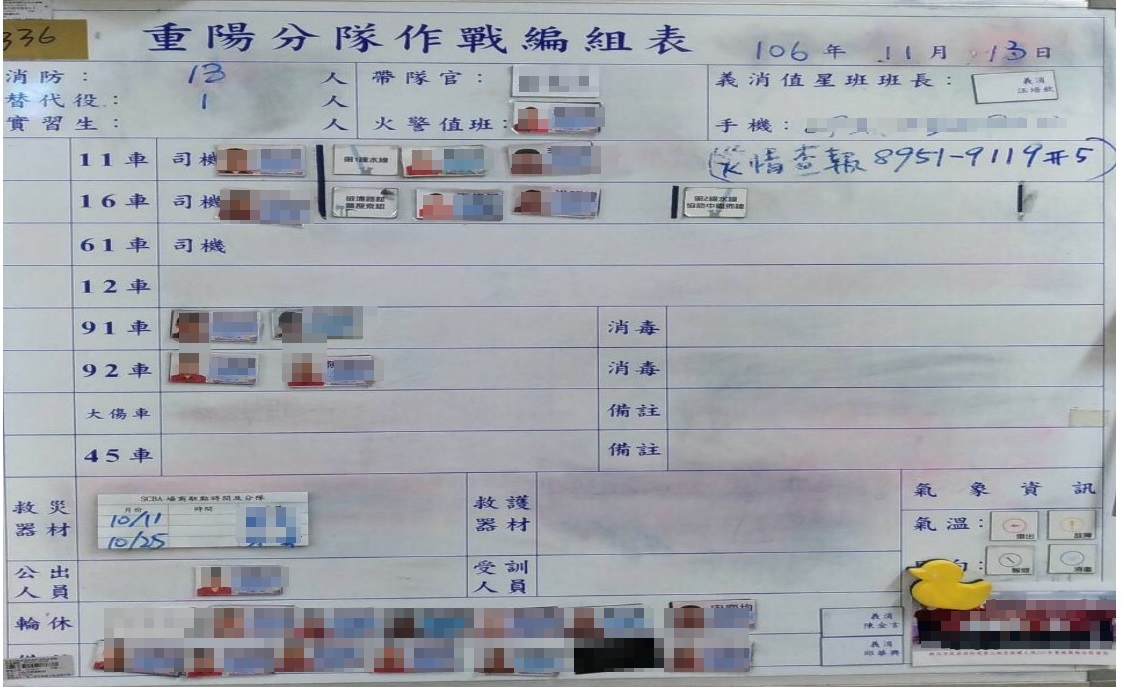 336
重陽分隊作戰編組表
106年 11月 13日
消防： 13 人
替代役： 1 人
實習生： 人
帶隊官：
火警值班：
義消值星班班長：
義消
手機：
11車 司機 第1線水線 災情查報 8951-9119#5
16車 司機 破壞器材 第2線水線
61車 司機
12車
91車 消毒
92車 消毒
大傷車 備註
45車 備註
救災器材
SCBA
月份 時間
10/11
10/25
救護器材
氣象資訊
氣溫：
公出人員
受訓人員
輪休
義消
陳金言
義消
邱華興